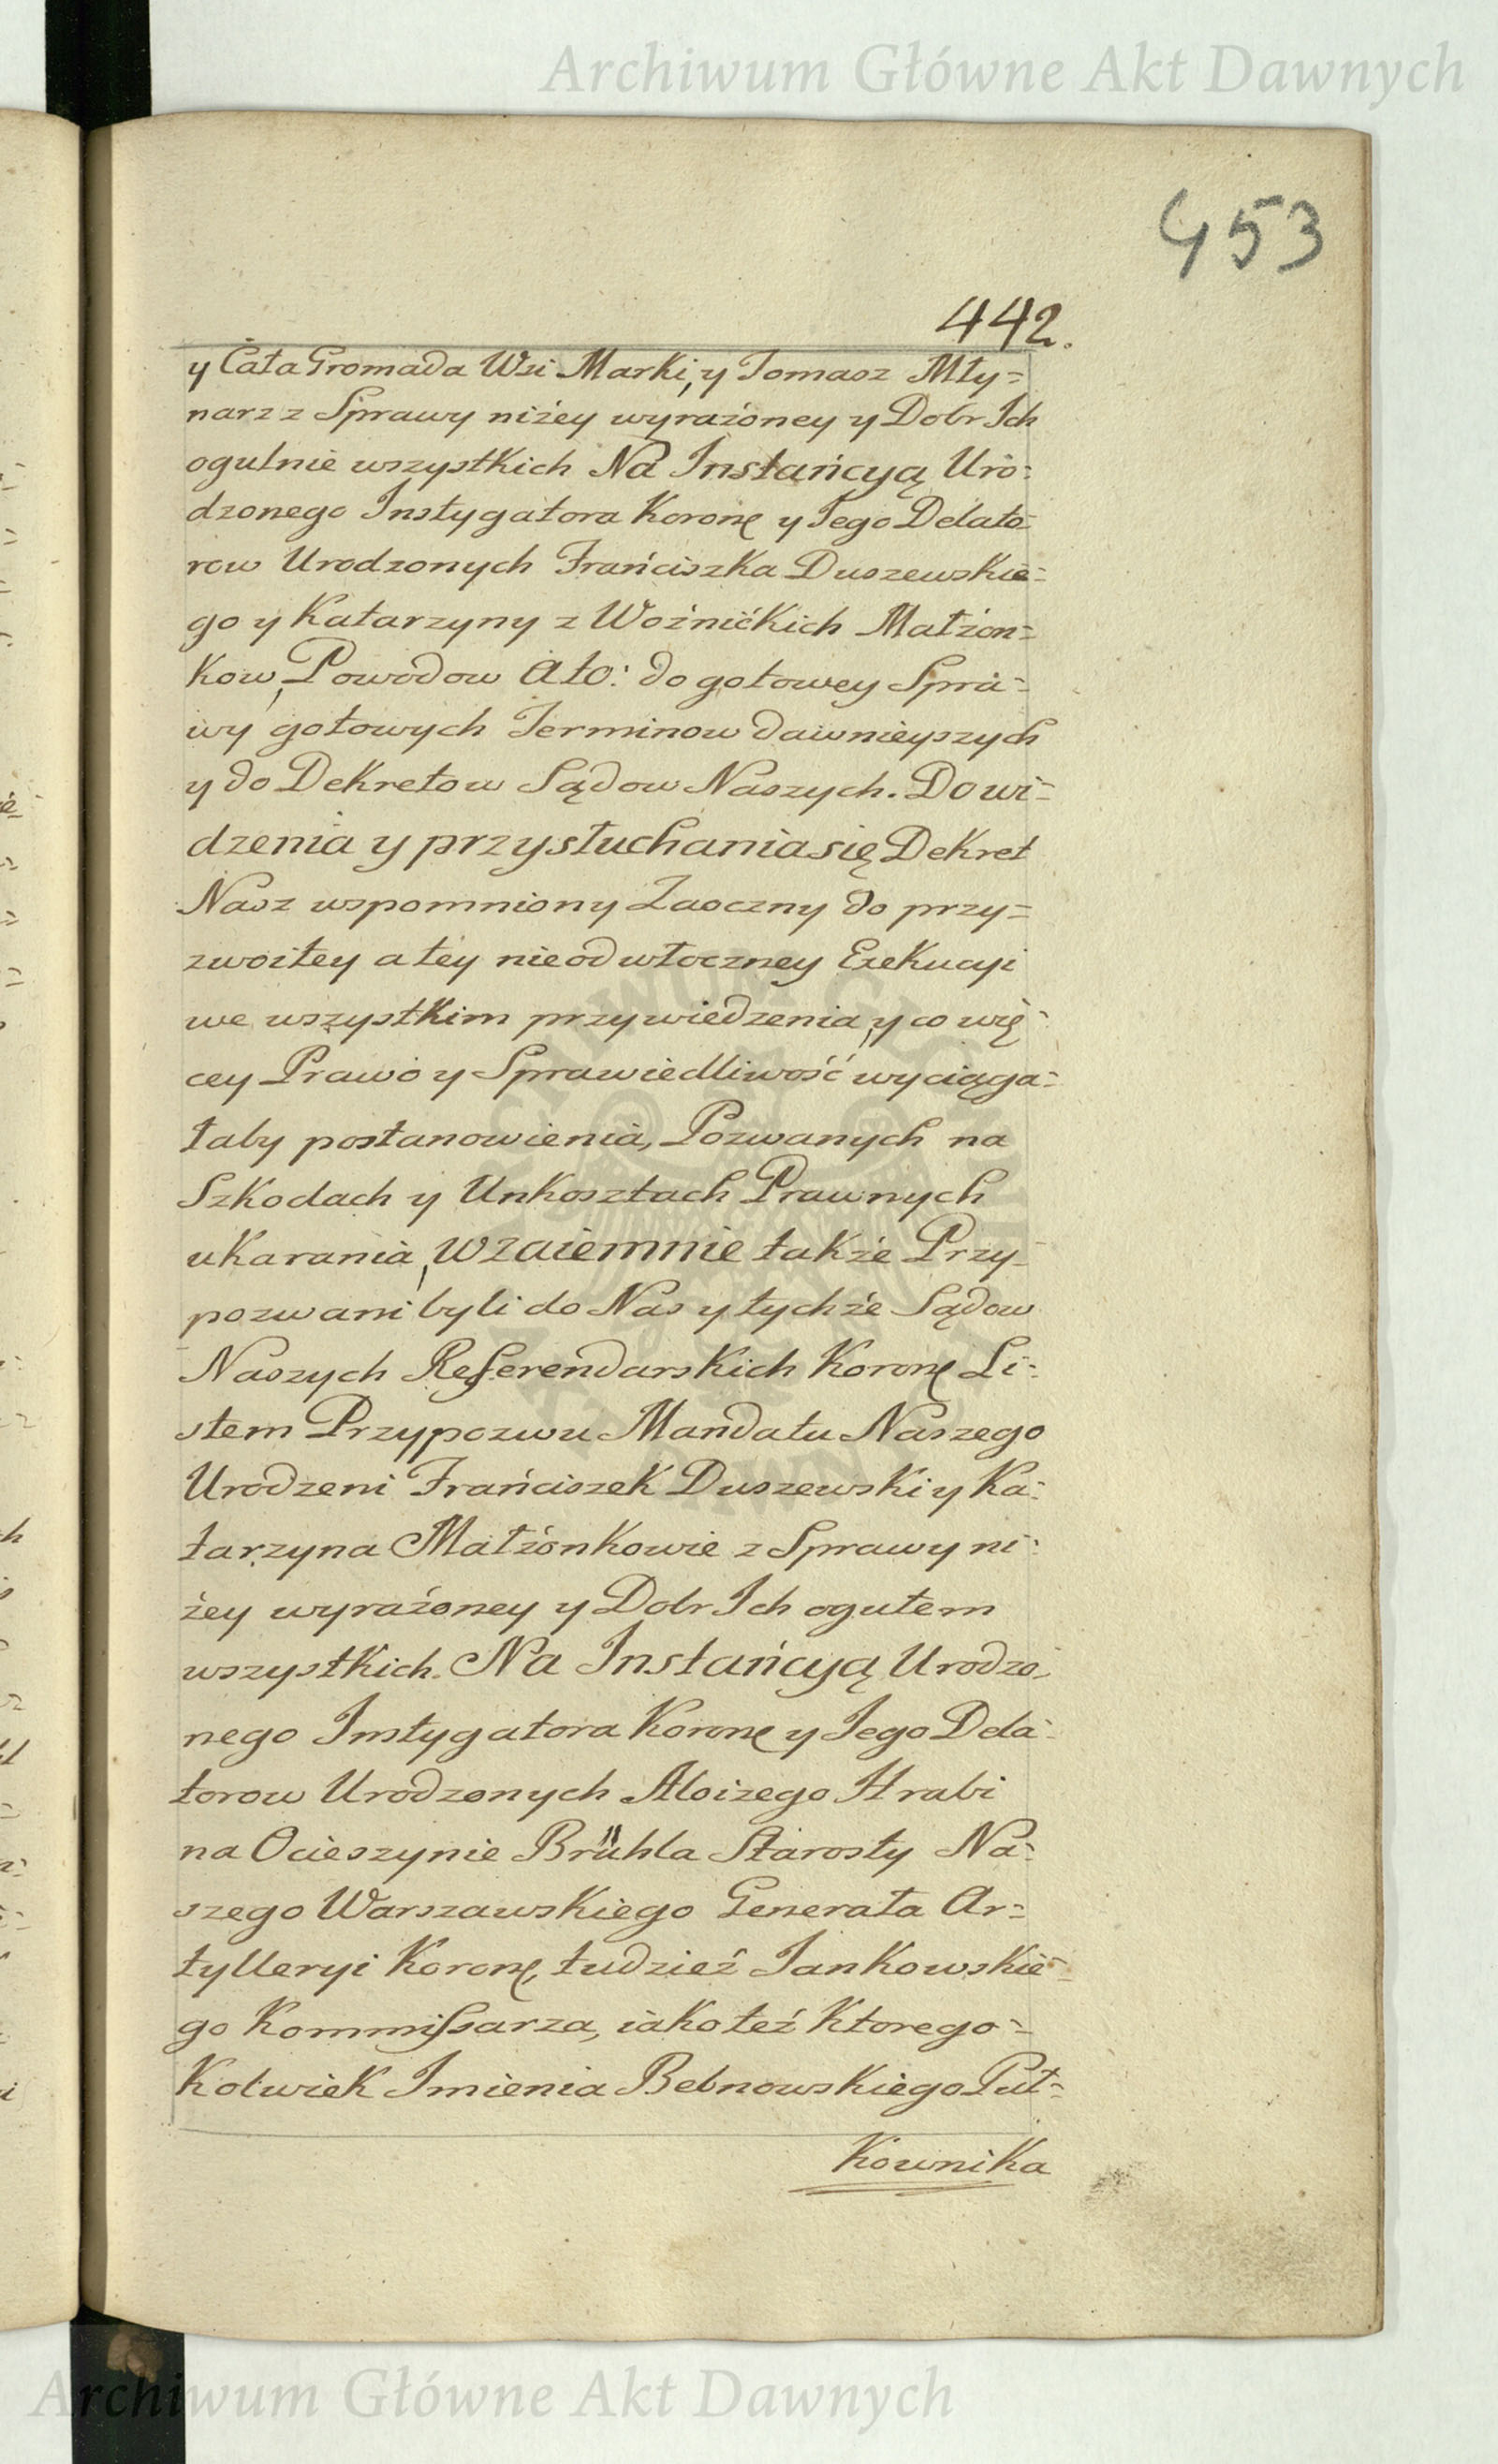 Archiwum Główne Akt Dawnych
453
442.
y Cała Gromada Wsi Marki, y Tomasz Mły=
narz z Sprawy niżey wyrażoney y Dobr Ich
ogulnie wszystkich Na Instańcyą Uro=
dzonego Instygatora Koronę y Iego Delato=
row Urodzonych Frańciszka Duszewskie=
go y Katarzyny z Woźnićkich Małżon=
kow, Powodow Ato: do gotowey Spra=
wy gotowych Terminow dawnieyszych
y do Dekretow Sądow Naszych. Do wi=
dzenia y przysłuchania się Dekret
Nasz wspomniony Zaoczny do przy=
zwoitey a tey nieodwłoczney Exekucyi
we wszystkim przywiedzenia, y co wię=
cey Prawo y Sprawiedliwość wyciąga=
łaby postanowienia, Pozwanych na
Szkodach y Unkosztach Prawnych
ukarania, Wzaiemnie także Przy=
pozwani byli do Nas y tychże Sądow
Naszych Referendarskich Koronę Li=
stem Przypozwu Mandatu Naszego
Urodzeni Frańciszek Duszewski y Ka=
tarzyna Małżonkowie z Sprawy ni=
żey wyrażoney y Dobr Ich ogułem
wszystkich. Na Instańcyą Urodzo=
nego Instygatora Koronę y Iego Dela=
torow Urodzonych Aloizego Hrabi
na Ocieszynie Brühla Starosty Na=
szego Warszawskiego Generała Ar=
tylleryi Koronę, tudzież Iankowskie=
go Kommissarza, iako też Ktorego=
kolwiek Imienia Bebnowskiego Puł=
kownika
Archiwum Główne Akt Dawnych